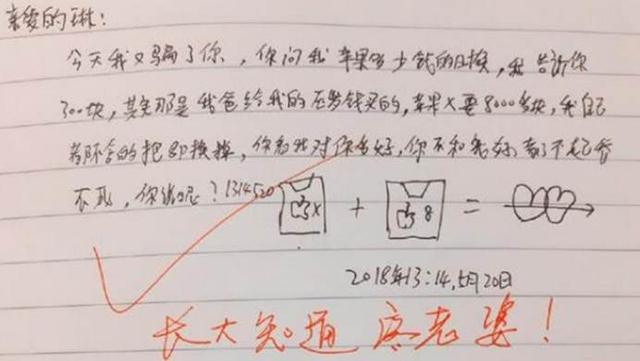 亲爱的琳：
今天我又骗了你，你问我苹果多少钱的时候，我告诉你
300块，其实那是我爸给我的压岁钱买的，苹果X要8000多块，我自己
把即换掉，你看我对你多好，你不和我好
不死，你说呢？1314520
X + 8 =
2018年13:14,5月20日
长大知道疼老婆！